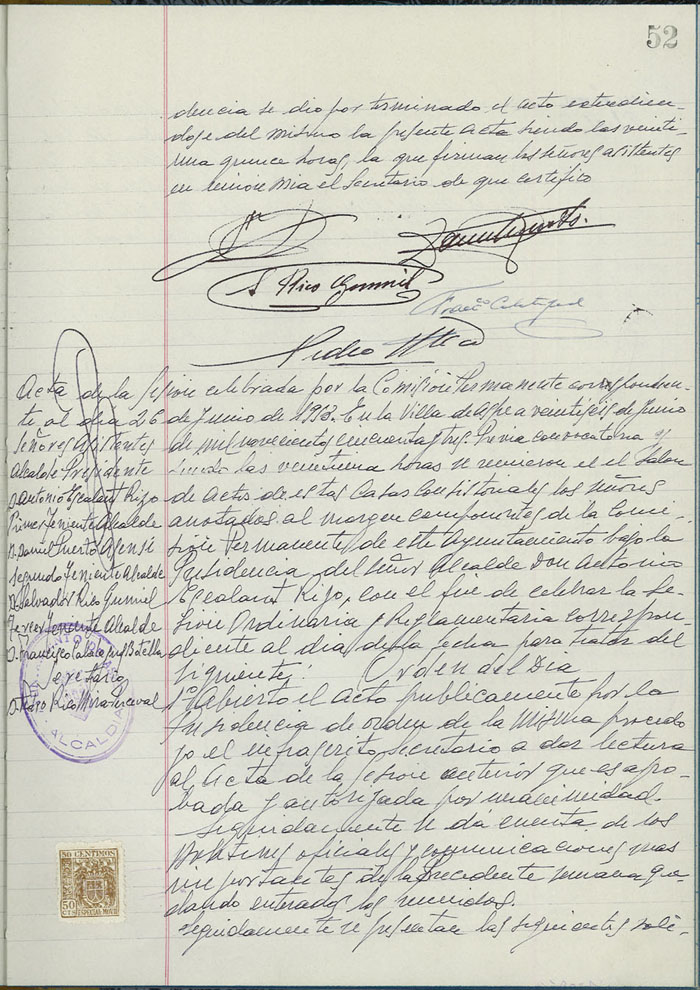 52
dencia se dio por terminado el acto extendien-
dose del mismo la presente Acta siendo las veinti-
una quince horas, la que firman los señores asistentes
en unión mia el Secretario de que certifico
S. Rico Gumiel
Pedro
Acta de la sesion celebrada por la Comisión Permanente correspondien-
te al dia 26 de Junio de 1953. En la Villa de Aspe a veintiseis de Junio
Señores Asistentes
Alcalde Presidente
D. Antonio Gealant Rizo
Primer Teniente Alcalde
D. Daniel Puerto Asensi
Segundo Teniente Alcalde
D. Salvador Rico Gumiel
Tercer Teniente Alcalde
D. Francisco Calatayud Botella
Secretario
D. Pedro Rico
de mil novecientos cincuenta y tres. Previa convocatoria y
siendo las veintiuna horas se reunieron en el Salon
de actos de estas Casas Consistoriales los señores
anotados al margen componentes de la Comi-
sión Permanente de este Ayuntamiento bajo la
Presidencia del Señor Alcalde Don Antonio
Gealant Rizo, con el fin de celebrar la Se-
sion Ordinaria y Reglamentaria correspon-
diente al dia de la fecha para tratar del
siguiente: Orden del Dia
1º Abierto el acto publicamente por la
Presidencia de orden de la misma procedo
yo el infrascrito Secretario a dar lectura
al Acta de la sesion anterior que es apro-
bada y autorizada por unanimidad.
Seguidamente se da cuenta de los
Boletines oficiales y comunicaciones mas
importantes de la precedente semana que-
dando enterados los reunidos.
Seguidamente se presentan las siguientes soli-
ALCALDIA
50 CENTIMOS
50
CTS ESPECIAL MOVIL